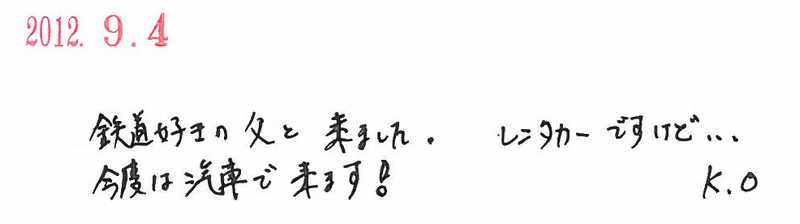 2012. 9. 4
鉄道好きの父と来ました。 レンタカーですけど…
今度は汽車で来ます! K.O